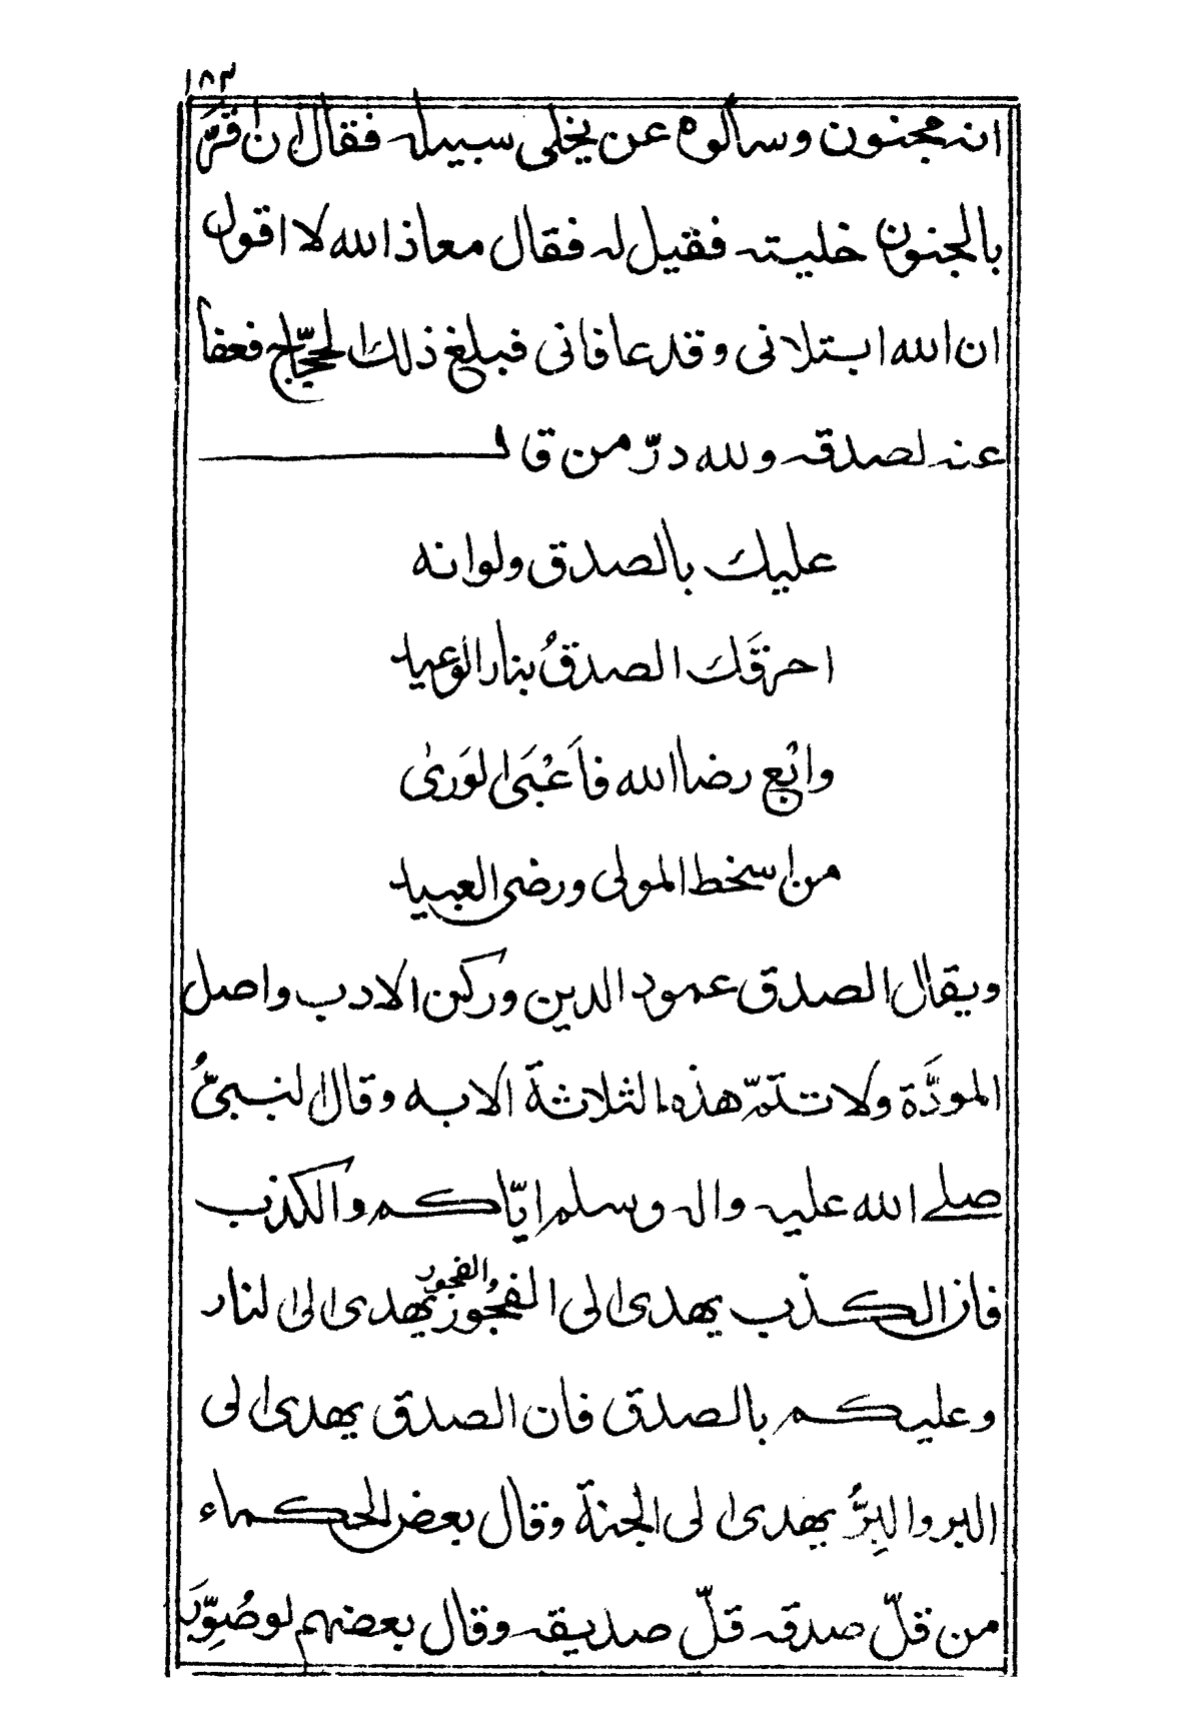 ١٨٣
انه مجنون وسألوه عن يخلى سبيله فقال ان قرّ
بالجنون خليته فقيل له فقال معاذ الله لا اقول
ان الله ابتلانى وقد عافانى فبلغ ذلك الحجّاج فعفا
عنه لصدقه ولله درّ من قال
عليك بالصدق ولو انه
احرقَك الصدقُ بنار الوعيد
وابْغ رضا الله فاَغْبَى الوَرىٰ
من اسخط المولى ورضى العبيد
ويقال الصدق عمود الدين وركن الادب واصل
المودَّة ولا تتمّ هذه الثلاثة الا به وقال النبىُّ
صلے الله عليه واله وسلم ايّاكم والكذب
فان الكذب يهدى الى الفجُور والفجور يهدى الى النار
وعليكم بالصدق فان الصدق يهدى الى
البر والبِرُّ يهدى الى الجنة وقال بعض الحكماء
من قلّ صدقه قلّ صديقه وقال بعضهم لو صُوِّرَ